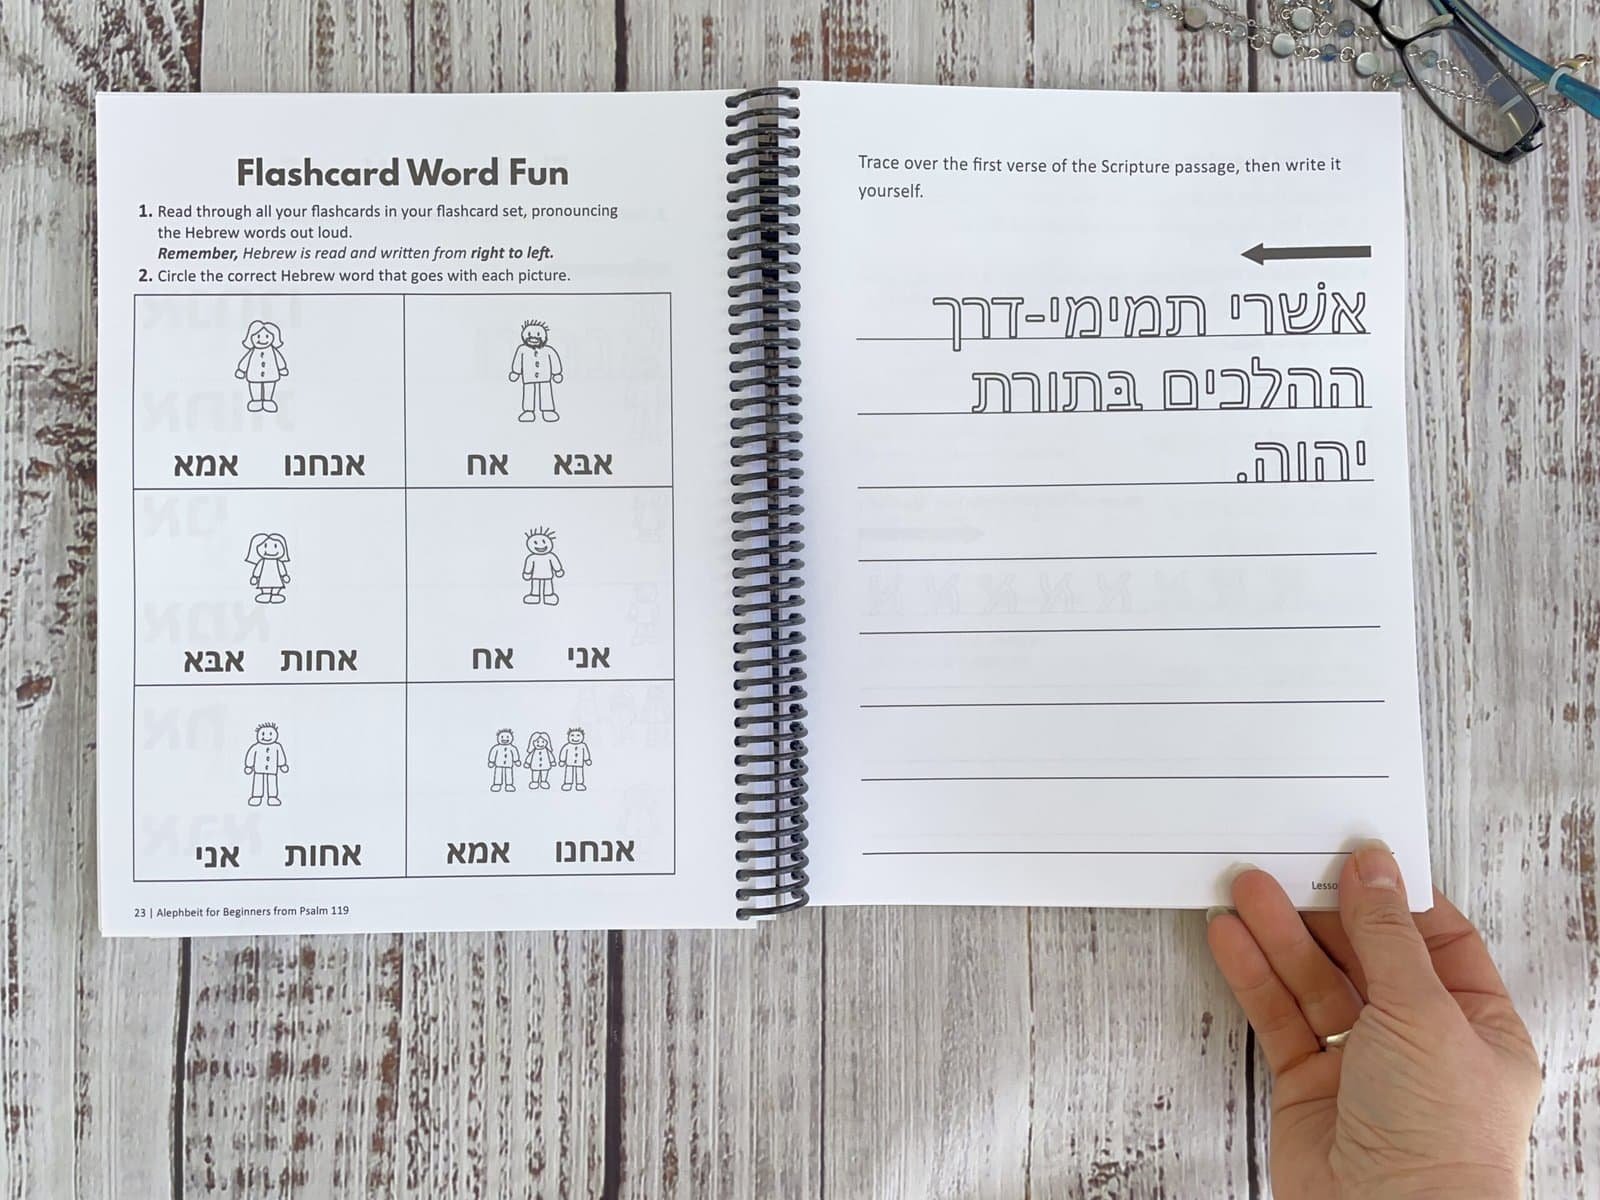 Flashcard Word Fun
1. Read through all your flashcards in your flashcard set, pronouncing
the Hebrew words out loud.
Remember, Hebrew is read and written from right to left.
2. Circle the correct Hebrew word that goes with each picture.
אבּא אח אנחנו אמא
אני אח אחות אבּא
אנחנו אמא אחות אני
23 | Alephbeit for Beginners from Psalm 119
Trace over the first verse of the Scripture passage, then write it
yourself.
אשׁרי תמימי-דרך
ההלכים בּתורת
יהוה.